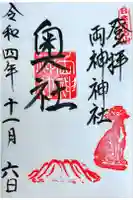 登拝
両神神社
奥社
令和四年十一月六日